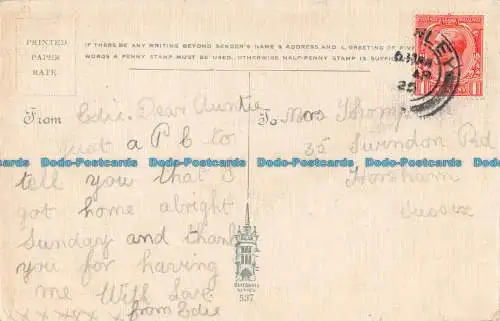 PRINTED
PAPER
RATE
IF THERE BE ANY WRITING BEYOND SENDER'S NAME & ADDRESS AND A GREETING OF FIVE
WORDS A PENNY STAMP MUST BE USED, OTHERWISE HALF-PENNY STAMP IS SUFFIC
From Edie. Dear Auntie
just a P C to
tell you that I
got home alright
Sunday and thank
you for having
me With Love
from Edie
x x x x x x x
To Mrs Thomp
35 Swindon Rd
Horsham
Sussex
537
Dodo-Postcards Dodo-Postcards Dodo-Postcards Dodo-Postcards Dodo-Postcards Dodo-Postcards